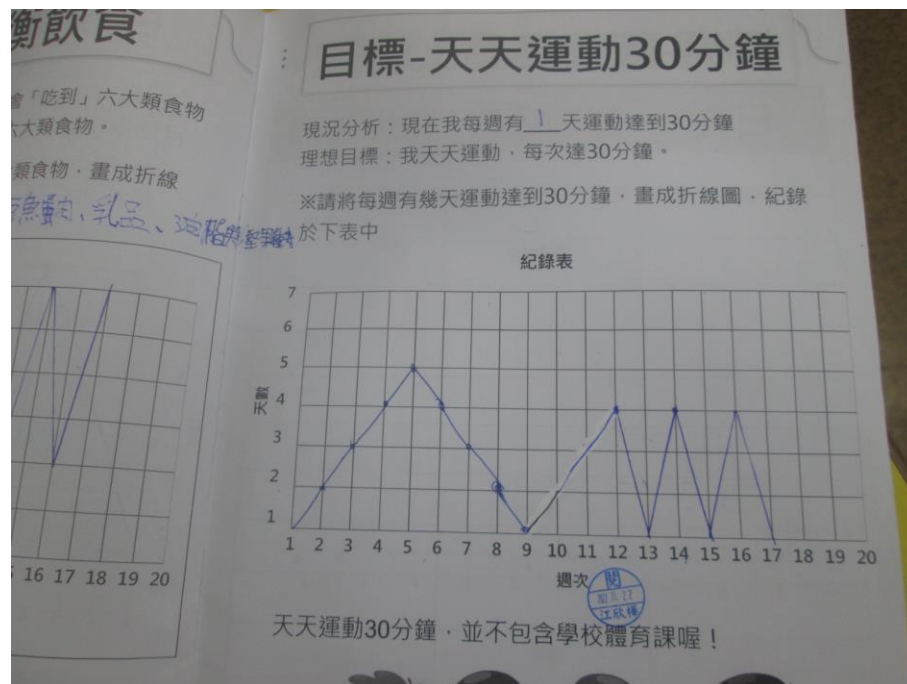 衡飲食
會「吃到」六大類食物
六大類食物。
類食物，畫成折線
魚蛋肉、乳品、油脂與堅果
目標-天天運動30分鐘
現況分析：現在我每週有 1 天運動達到30分鐘
理想目標：我天天運動，每次達30分鐘。
※請將每週有幾天運動達到30分鐘，畫成折線圖，紀錄
於下表中
紀錄表
7
6
5
4
3
2
1
天數
1 2 3 4 5 6 7 8 9 10 11 12 13 14 15 16 17 18 19 20
週次
16 17 18 19 20
閱
天天運動30分鐘，並不包含學校體育課喔！